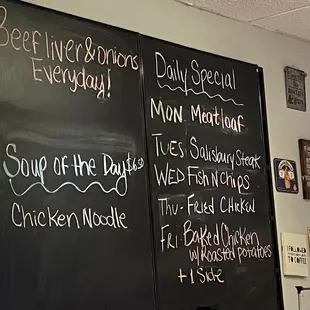 Beef liver & onions
Everyday!
Soup of the Day $6.50
Chicken Noodle
Daily Special
Mon. Meatloaf
Tues Salisbury Steak
Wed Fish N Chips
Thu- Fried Chicken
Fri Baked Chicken
w/ Roasted potatoes
+ 1 Side
I FOLLOWED
TO COFFEE